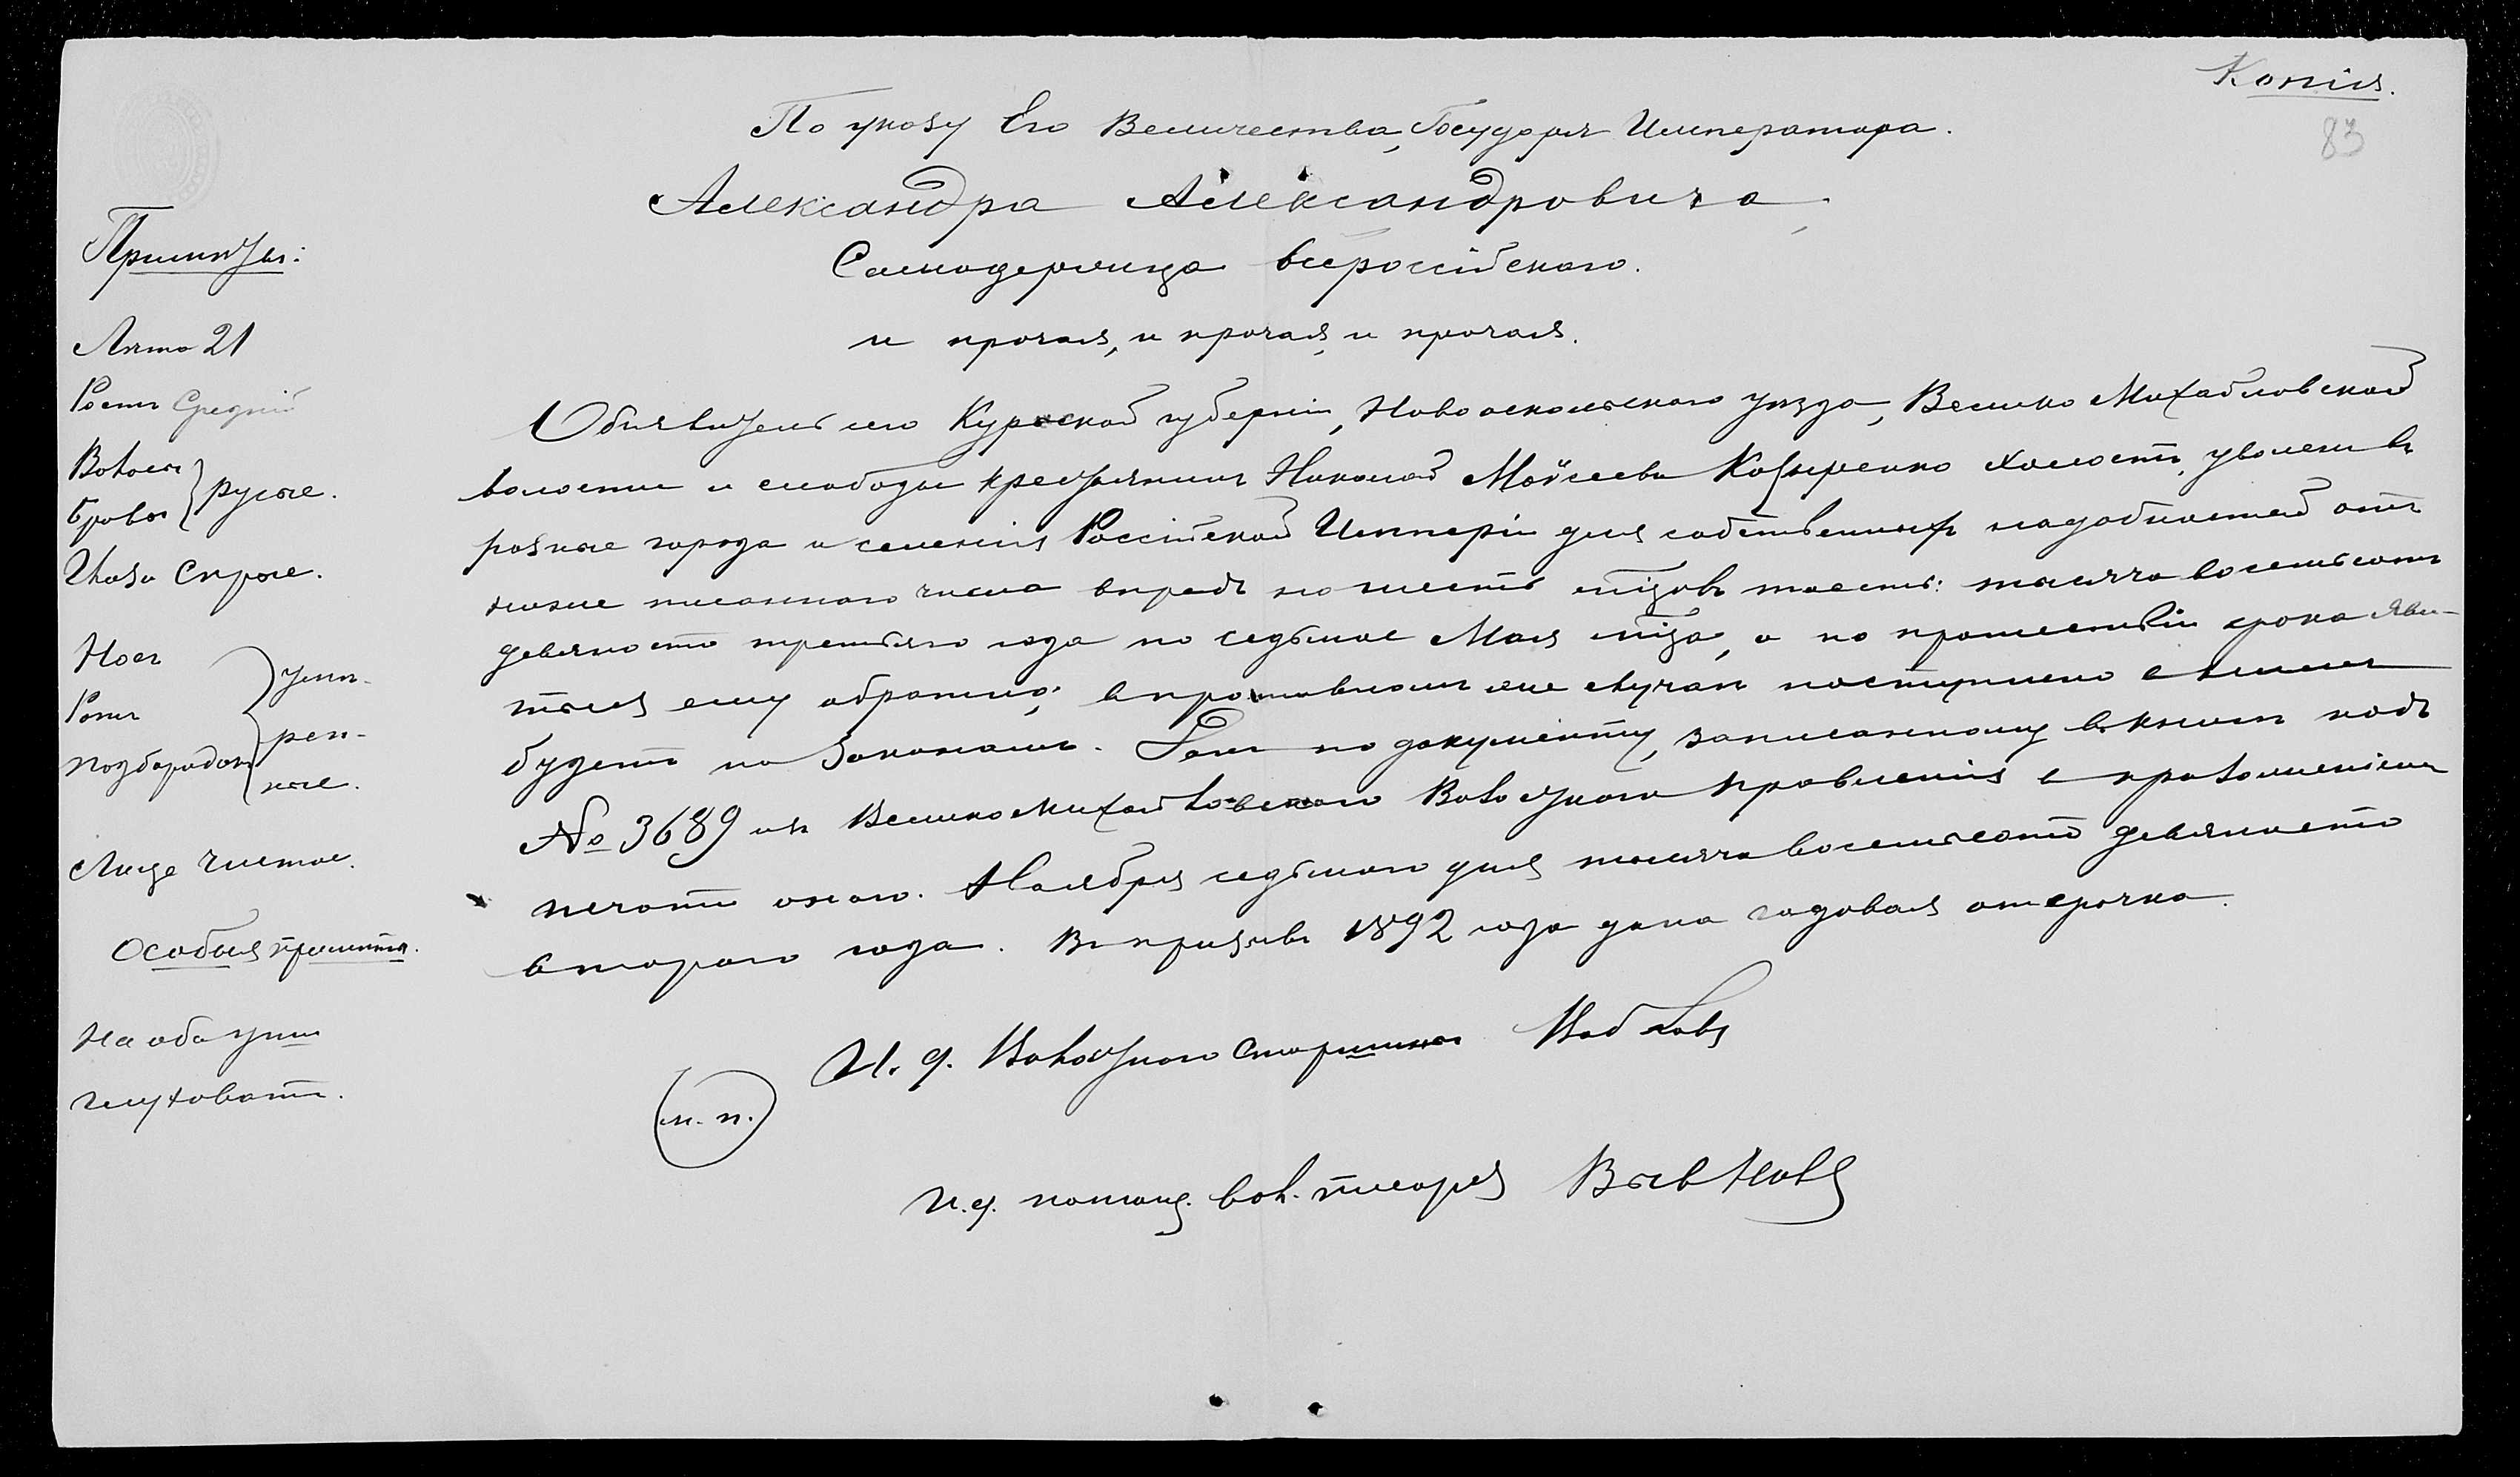 Копія.
83
По указу Его Величества, Государя Императора.
Александра Александровича,
Самодержца всероссійскаго.
и прочая, и прочая, и прочая.
Примѣты:
Лѣта 21
Ростъ Средній
Волосы
брови
русые.
Глаза Сѣрые.
Носъ
Ротъ
подбородокъ
умѣ-
рен-
ные.
Лице чистое.
Особыя примѣты.
На оба уши
глуховатъ.
Объявитель сего Курской губерніи, Новооскольскаго уѣзда, Велико Михайловской
волости и слободы крестьянинъ Николай Мойсеевъ Козыренко холостъ, уволенъ въ
разные города и селенія Россійской Имперіи для собственныхъ надобностей отъ
ниже писаннаго числа впредь на шесть мѣсцовъ тоесть: тысяча восемьсотъ
девяносто третьяго года по седьмое Мая мѣсца, а по прошествіи срока яви-
ться ему обратно; въ противномъ же случаѣ поступлено съ нимъ
будетъ по Законамъ. Данъ по документу, записанному въ книгѣ подъ
№ 3689 изъ Великомихайловскаго Волостнаго Правленія съ приложеніемъ
печати онаго. Ноября седьмаго дня тысяча восемьсотъ девяносто
втораго года. Въ призывъ 1892 года дана годовая отсрочка.
И. д. Волостнаго Старшины
(м. п.)
И. д. помощ. вол. писаря